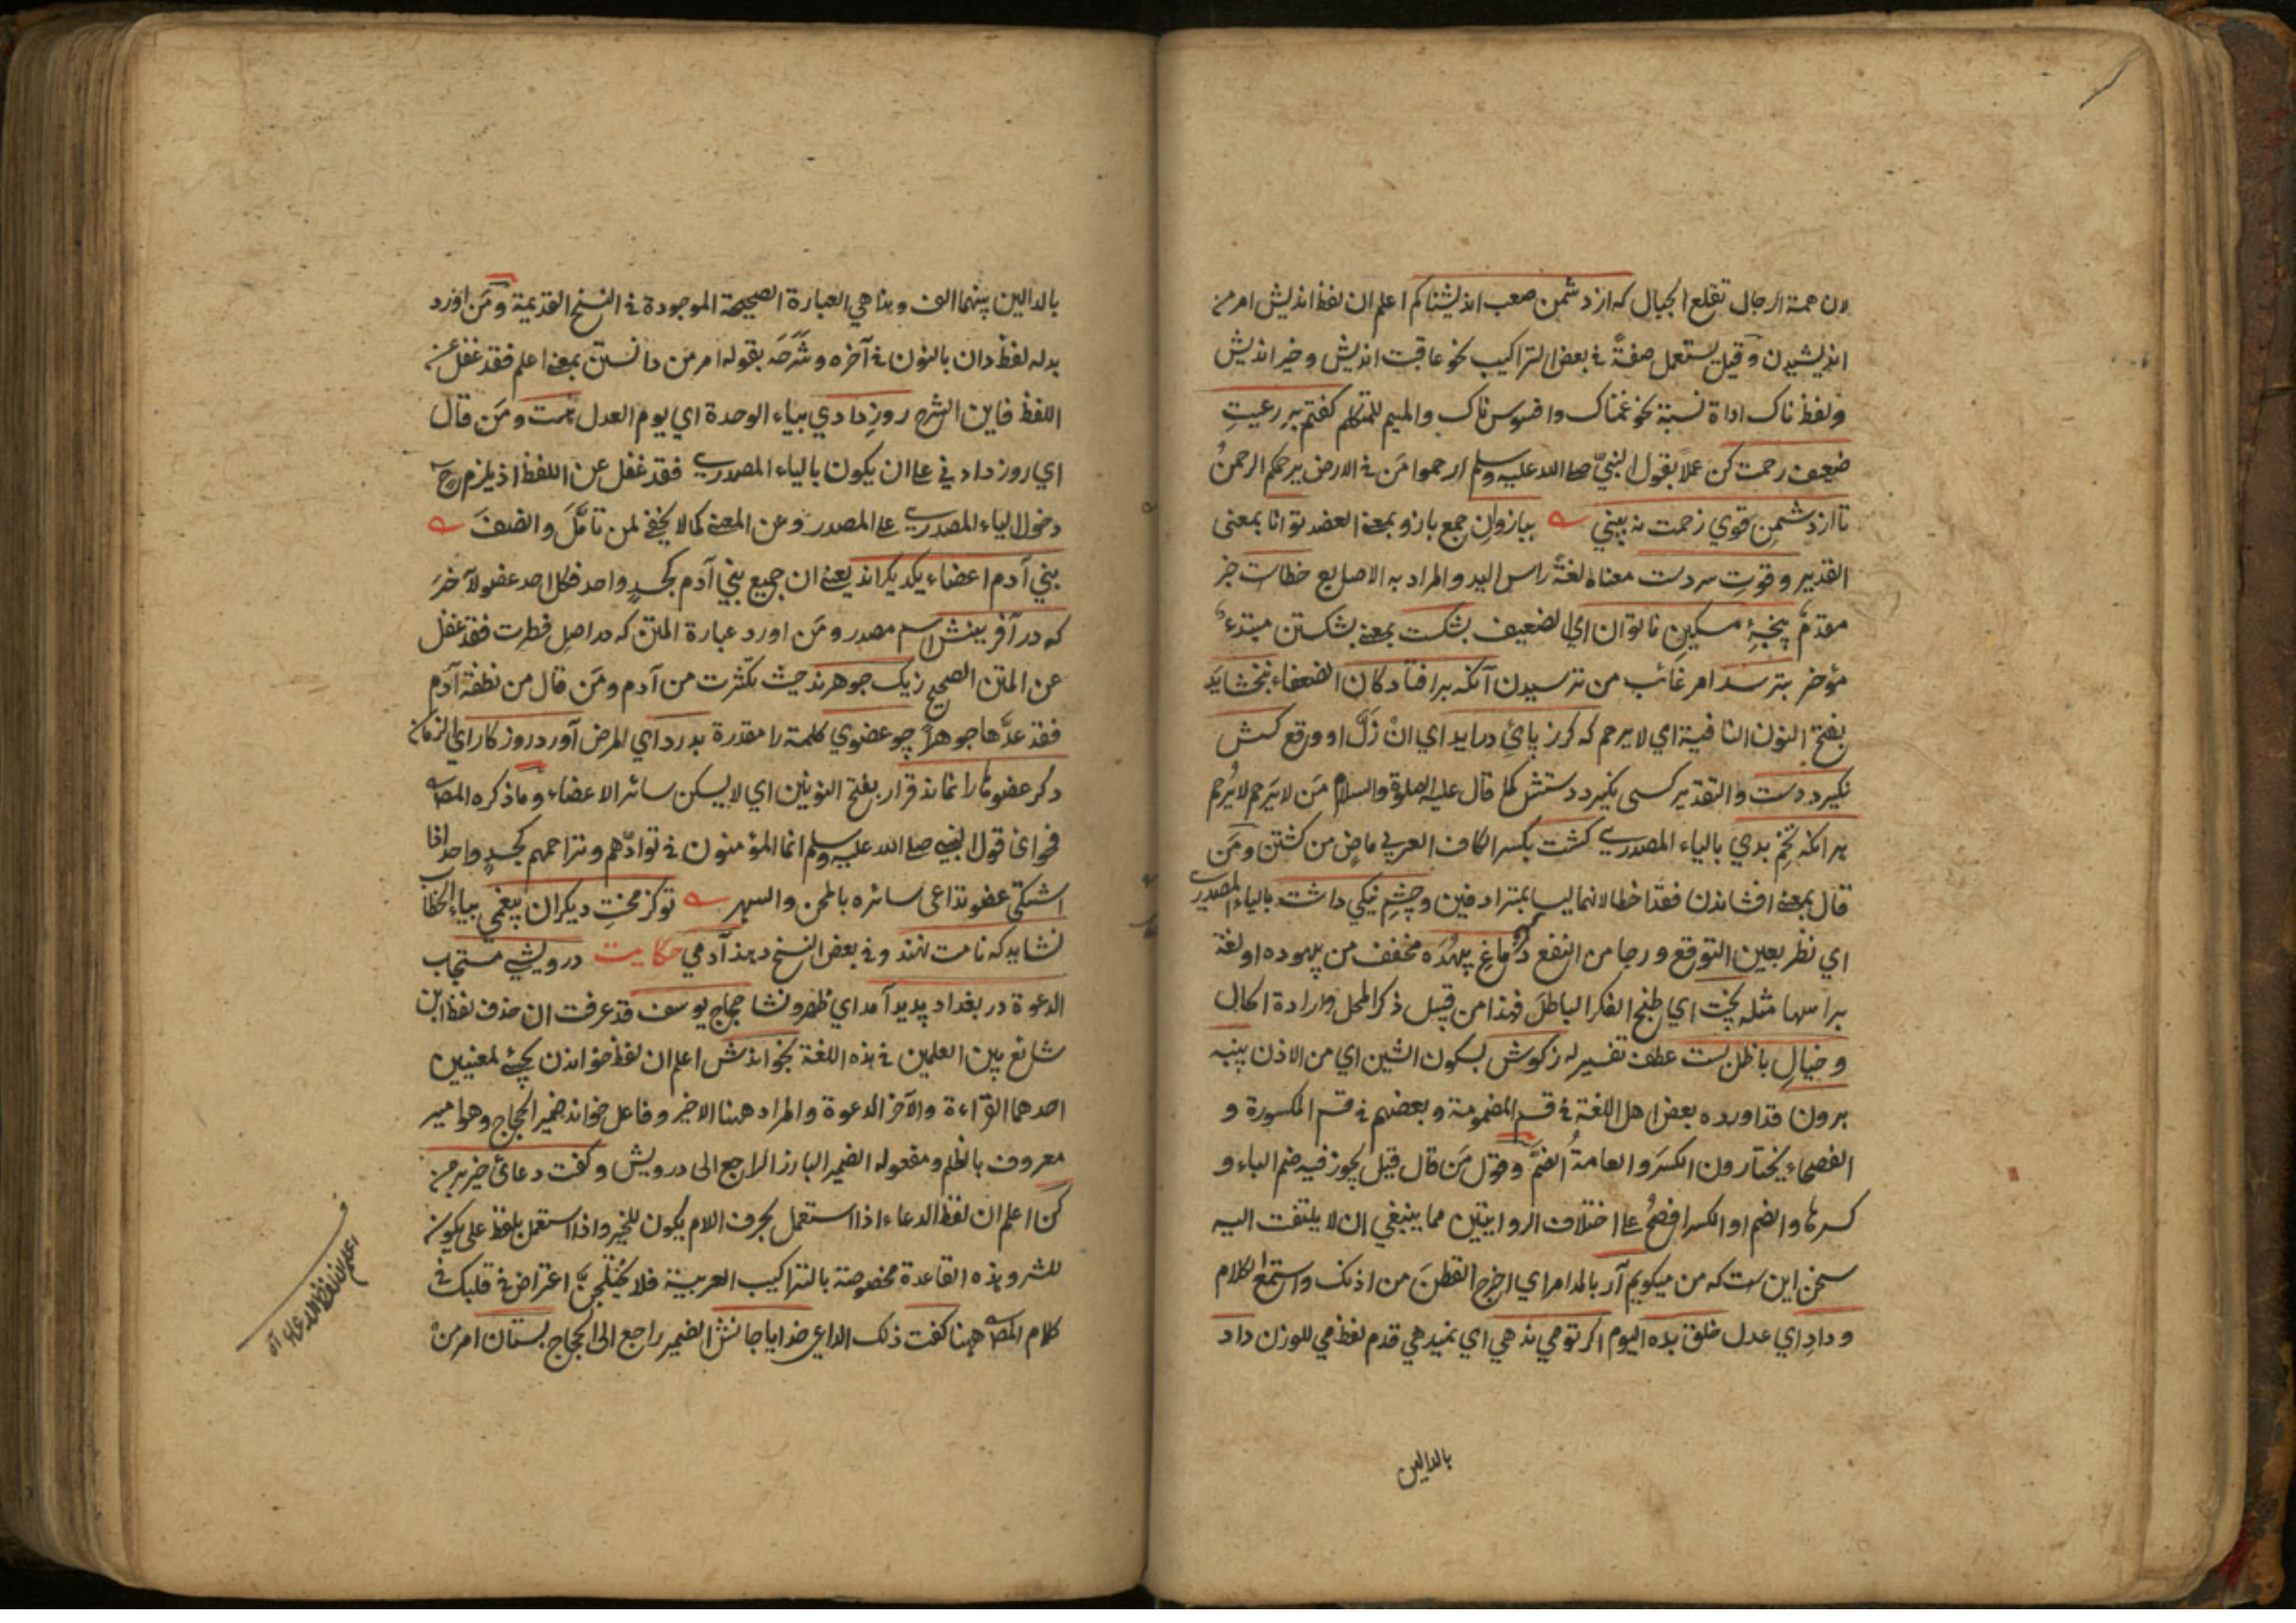 لان همة الرجال تقلع الجبال كه از دشمن صعب انديشناكم اعلم ان لفظ انديش امر من
انديشيدن وقيل يستعمل صفةً في بعض التراكيب نحو عاقبت انديش وخير انديش
ولفظ ناك اداة نسبة نحو غمناك وافسوس ناك والميم للمتكلم كفتم بر رعيتِ
ضعيف رحمت كن عملا بقول النبيّ صلى الله عليه وسلم ارحموا مَن في الارض يرحمكم الرحمنُ
تا از دشمنِ قوي زحمت نه بيني ببازوانِ جمع بازو بمعنى العضد توانا بمعنى
القدير وقوتِ سر دست معناه لغةً راس اليد والمراد به الاصابع خطاست خبر
مقدّم پنجهٔ مسكينِ ناتوان اي الضعيف بشكست بمعنى بشكستن مبتدء
مؤخر بترسد امر غائب من ترسيدن آنكه بر افتادكان الضعفاء نبخشايد
بفتح النون النافية اي لا يرحم كه كر ز پايْ درايد اي انْ زَلَّ او وقع كسش
نكيرد دست والتقدير كسى نكيرد دستش كما قال عليه الصلوة والسلام مَن لا يَرحم لا يُرحم
هر انكه تخمِ بدي بالياء المصدري كشت بكسر الكاف العربي ماضٍ من كشتن ومَن
قال بمعنى افشاندن فقد اخطا لانهما ليسا بمترادفين وچشمِ نيكي داشت بالياء المصدري
اي نظر بعين التوقع ورجا من النفع دماغِ بيهُدَه مخفف من بيهوده او لغة
براسها مثله پخت اي طبخ الفكر الباطلَ فهذا من قبيل ذكر المحل وارادة الحال
وخيالِ باطل بست عطف تفسير له ز كوش بسكون الشين اي من الاذن پنبه
برون قد اورده بعض اهل اللغة في قسم المضمومة وبعضهم في قسم المكسورة و
الفصحاء يختارون الكسرَ والعامةُ الضمَّ وقول مَن قال قيل يجوز فيه ضم الباء و
كسرها والضم او الكسر افصحُ على اختلاف الروايتين مما ينبغي ان لا يلتفت اليه
سخن اين ست كه من ميكويم آر بالمد امر اي اخرج القطنَ من اذنك واستمع الكلام
ودادِ اي عدل خلق بده اليوم اكر تو مي ندهي اي نميدهي قدم لفظ مي للوزن داد
بالدالين
بالدالين بينهما الف وهذا هي العبارة الصحيحة الموجودة في النسخ القديمة ومَن اورد
بدله لفظ دان بالنون في آخره وشَرَحَه بقوله امر من دانستن بمعنى اعلم فقد غفل عن
اللفظ فاين الشرح روزِ دادي بياء الوحدة اي يوم العدل هست ومَن قال
اي روز داد في على ان يكون بالياء المصدري فقد غفل عن اللفظ اذ يلزم ح
دخول الياء المصدري على المصدر وعن المعنى كما لا يخفى لمن تامَّلَ وانصفَ
بني آدم اعضاء يكديكراند يعنى ان جميع بني آدم كجسدٍ واحد فكل احد عضو لآخرَ
كه در آفرينش اسم مصدر ومَن اورد عبارة المتن كه در اصلِ فطرت فقد غفل
عن المتن الصحيح ز يك جوهرند حيث تكثرت من آدم ومَن قال من نطفة آدم
فقد عدَّها جوهراً چو عضوي كلمة را مقدرة بدرد اي المرض آورد روزكار اي الزمان
دكر عضوها را نماند قرار بفتح النونين اي لا يسكن سائر الاعضاء وما ذكره المص
فحواى قول النبي صلى الله عليه وسلم انما المؤمنون في توادّهم وتراحمهم كجسدٍ واحد اذا
اشتكى عضو تداعى سائره بالحمى والسهر تو كز محنتِ ديكران بيغمي بياء الخطاب
نشايد كه نامت نهند وفي بعض النسخ دهند آدمي حكايت درويشي مستجاب
الدعوة در بغداد پديد آمد اي ظهر ونشا حجاج يوسف قد عرفت ان حذف لفظ ابن
شائع بين العلمين في هذه اللغة بخواندش اعلم ان لفظ خواندن يجئ لمعنيين
احدهما القراءة والآخر الدعوة والمراد ههنا الاخير وفاعل خواند ضمير الحجاج وهو امير
معروف بالظلم ومفعوله الضمير البارز الراجع الى درويش وكفت دعائ خير بر من
كن اعلم ان لفظ الدعاء اذا استعمل بحرف اللام يكون للخير واذا استعمل بلفظ على يكون
للشر وهذه القاعدة مخصوصة بالتراكيب العربية فلا يختلجنّ اعتراض في قلبك في
كلام المص ههنا كفت ذلك الداعي خدايا جانش الضمير راجع الى الحجاج بستان امر من
اعلم ان لفظ الدعاء اه